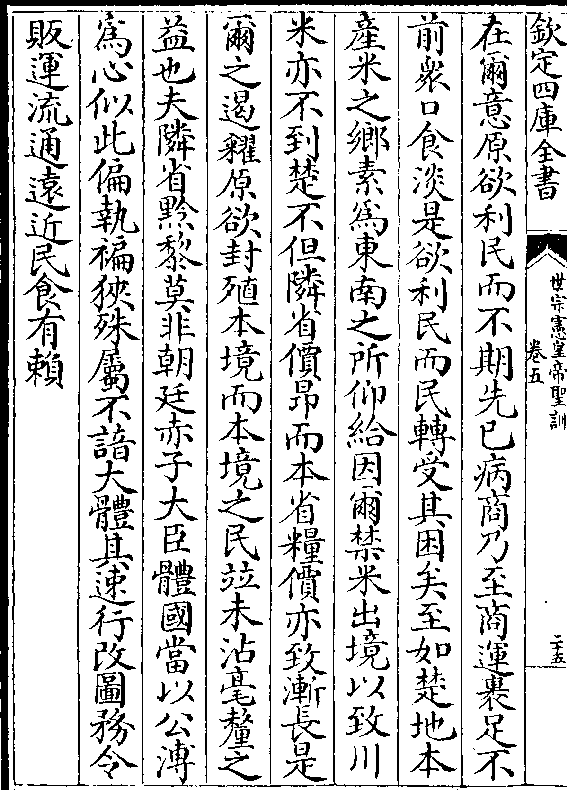 欽定四庫全書
世宗憲皇帝聖訓
卷五
二十五
在爾意原欲利民而不期先已病商乃至商運裹足不
前衆口食淡是欲利民而民轉受其困矣至如楚地本
產米之鄉素爲東南之所仰給因爾禁米出境以致川
米亦不到楚不但隣省價昂而本省糧價亦致漸長是
爾之遏糴原欲封殖本境而本境之民竝未沾毫釐之
益也夫隣省黔黎莫非朝廷赤子大臣體國當以公溥
爲心似此偏執褊狹殊屬不諳大體其速行改圖務令
販運流通遠近民食有賴